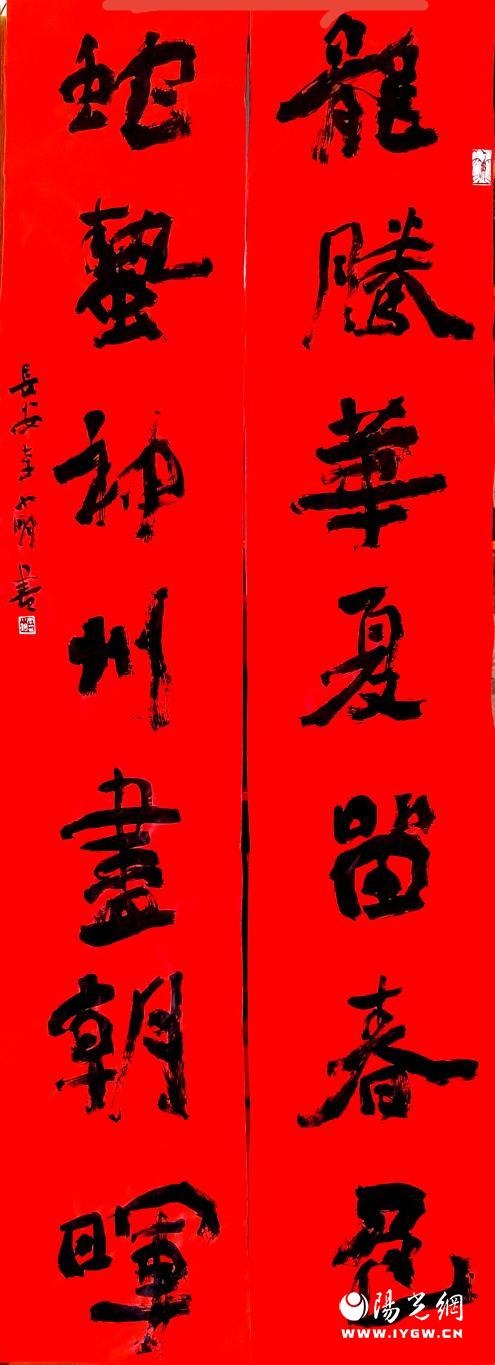 龍騰華夏留春色
蛇蟄神州盡朝暉
長安明書
陽光網
WWW.IYGW.CN